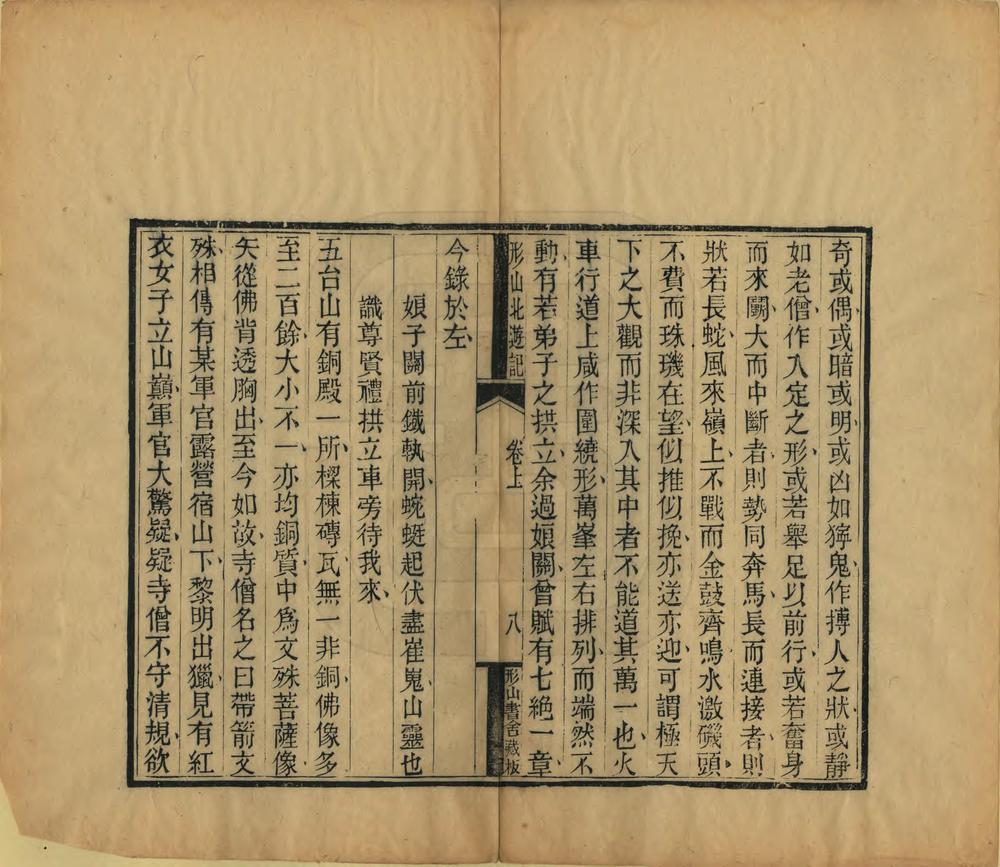 奇或偶或暗或明或凶如獰鬼作搏人之狀或靜
如老僧作入定之形或若舉足以前行或若奮身
而來鬭大而中斷者則勢同奔馬長而連接者則
狀若長蛇風來嶺上不戰而金鼓齊鳴水激磯頭
不費而珠璣在望似推似挽亦送亦迎可謂極天
下之大觀而非深入其中者不能道其萬一也火
車行道上咸作圍繞形萬峯左右排列而端然不
動有若弟子之拱立余過娘關曾賦有七絕一章
形山北遊記
卷上
八
形山書舍藏板
今錄於左
娘子關前鐵軌開蜿蜒起伏盡崔嵬山靈也
識尊賢禮拱立車旁待我來
五台山有銅殿一所樑棟磚瓦無一非銅佛像多
至二百餘大小不一亦均銅質中爲文殊菩薩像
矢從佛背透胸出至今如故寺僧名之曰帶箭文
殊相傳有某軍官露營宿山下黎明出獵見有紅
衣女子立山巔軍官大驚疑疑寺僧不守清規欲